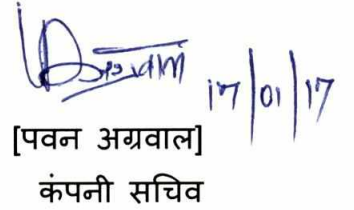 17/01/17
[पवन अग्रवाल]
कंपनी सचिव